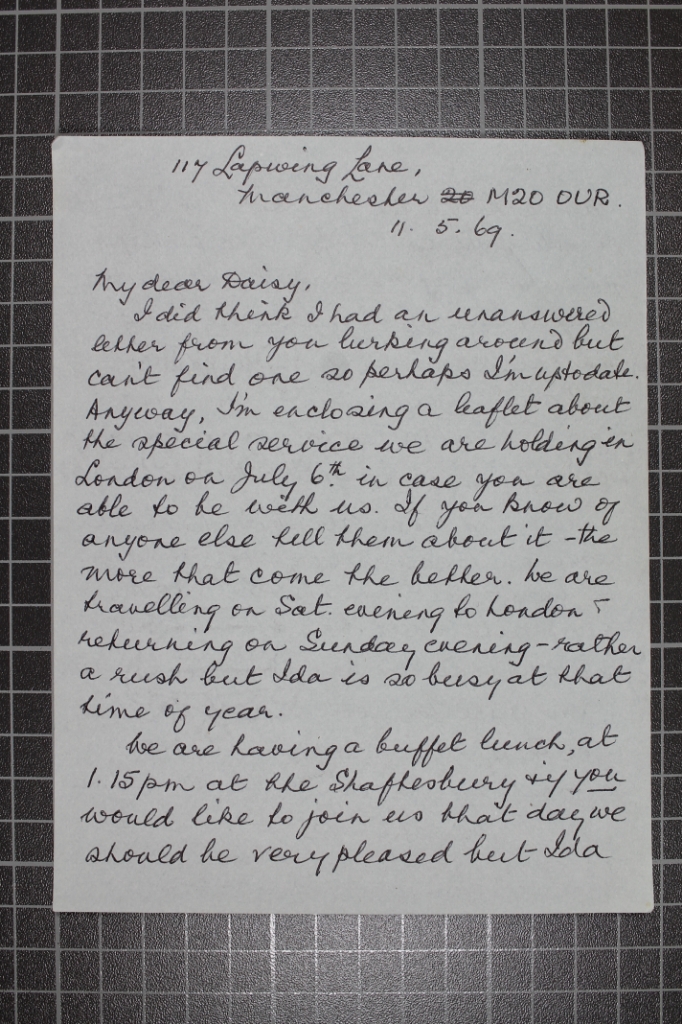 117 Lapwing Lane,
Manchester 20 M20 OUR.
11. 5. 69.
My dear Daisy,
I did think I had an unanswered
letter from you lurking around but
can't find one so perhaps I'm uptodate.
Anyway, I'm enclosing a leaflet about
the special service we are holding in
London on July 6th in case you are
able to be with us. If you know of
anyone else tell them about it - the
more that come the better. We are
travelling on Sat. evening to London &
returning on Sunday evening - rather
a rush but Ida is so busy at that
time of year.
We are having a buffet lunch, at
1.15pm at the Shaftesbury & if you
would like to join us that day we
should be very pleased but Ida